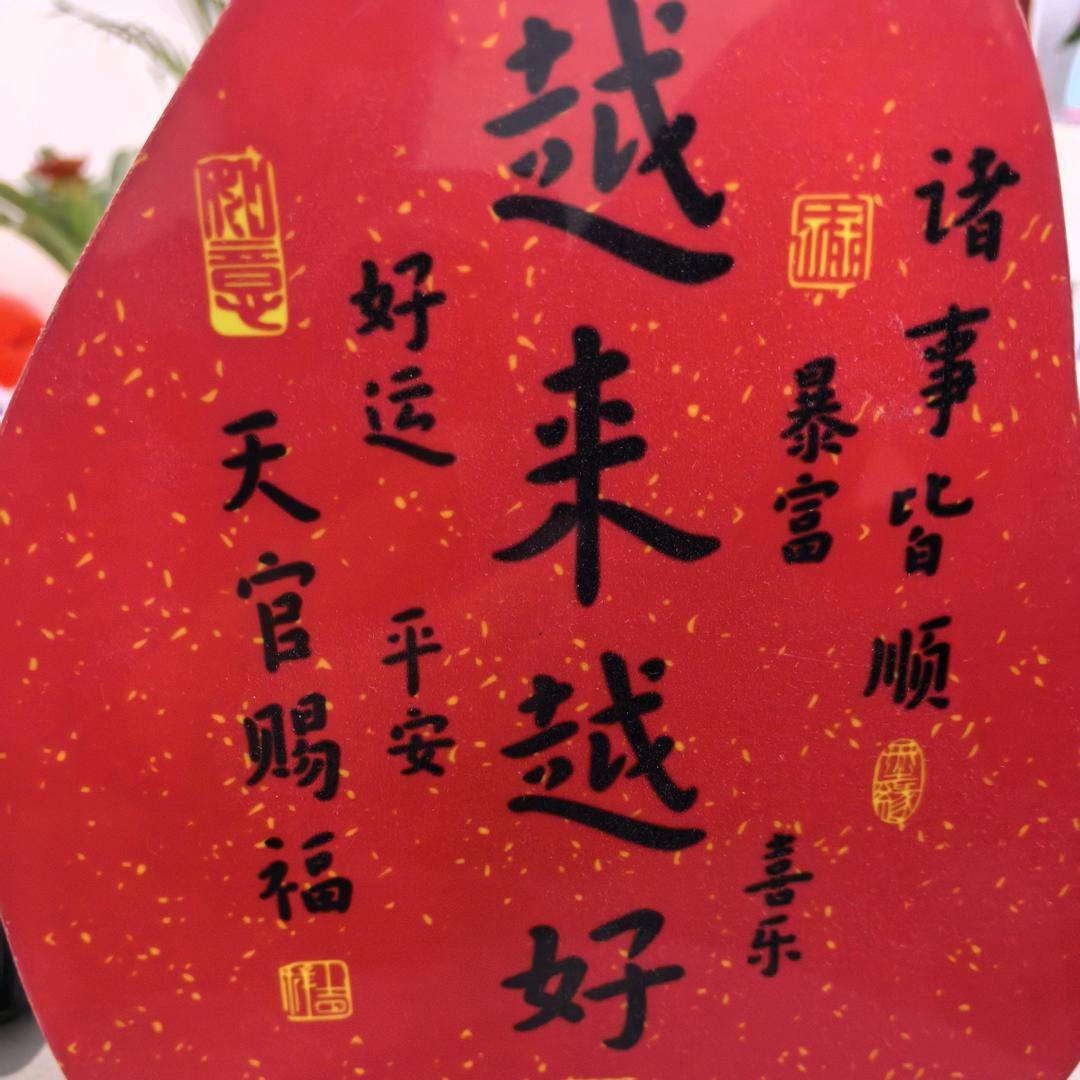 诸事皆顺
暴富
喜乐
越来越好
好运
平安
天官赐福
吉祥